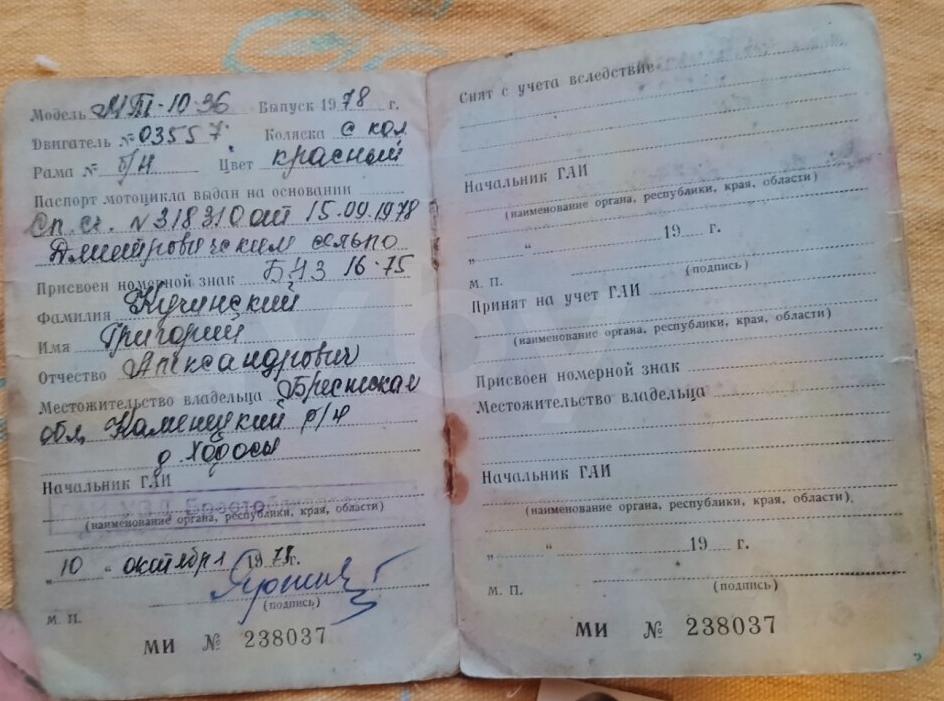 Модель МТ-10-36 Выпуск 1978 г.
Двигатель № 03557 Коляска с кол
Рама № б/н Цвет красный
Паспорт мотоцикла выдан на основании
Сп. сч. N318310 от 15.09.1978
Дмитровическим сельпо
Присвоен номерной знак БНЗ 16-75
Фамилия Кучинский
Имя Григорий
Отчество Александрович
Местожительство владельца Брестская
обл. Каменецкий р/н
д. Ходосы
Начальник ГАИ
(наименование органа, республики, края, области)
„10“ октября 1978г.
(подпись)
М. П.
МИ № 238037
Снят с учета вследствие
Начальник ГАИ
(наименование органа, республики, края, области)
„ “ 19 г.
М. П. (подпись)
Принят на учет ГАИ
(наименование органа, республики, края, области)
Присвоен номерной знак
Местожительство владельца
Начальник ГАИ
(наименование органа, республики, края, области)
„ “ 19 г.
М. П. (подпись)
МИ № 238037